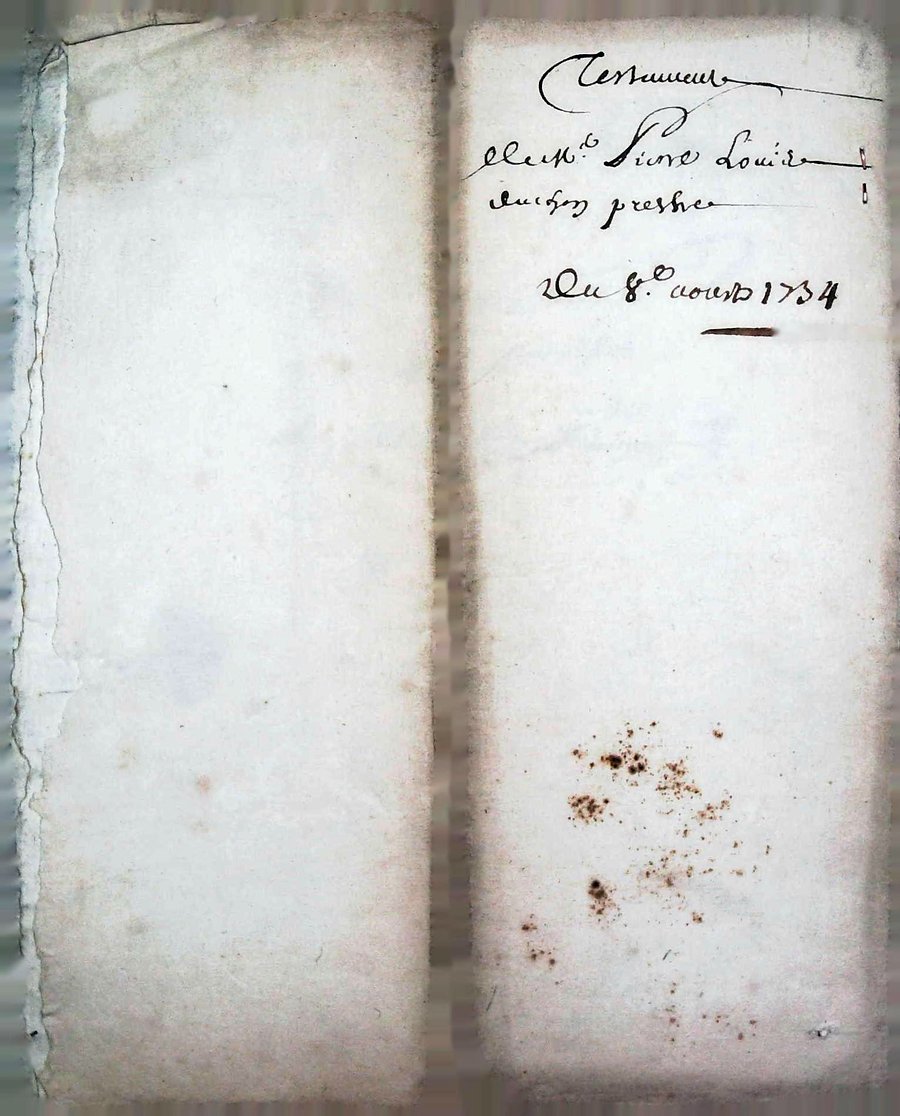 Testament
de Mr. Pierre Louis
prestre
Du 8e aoust 1734